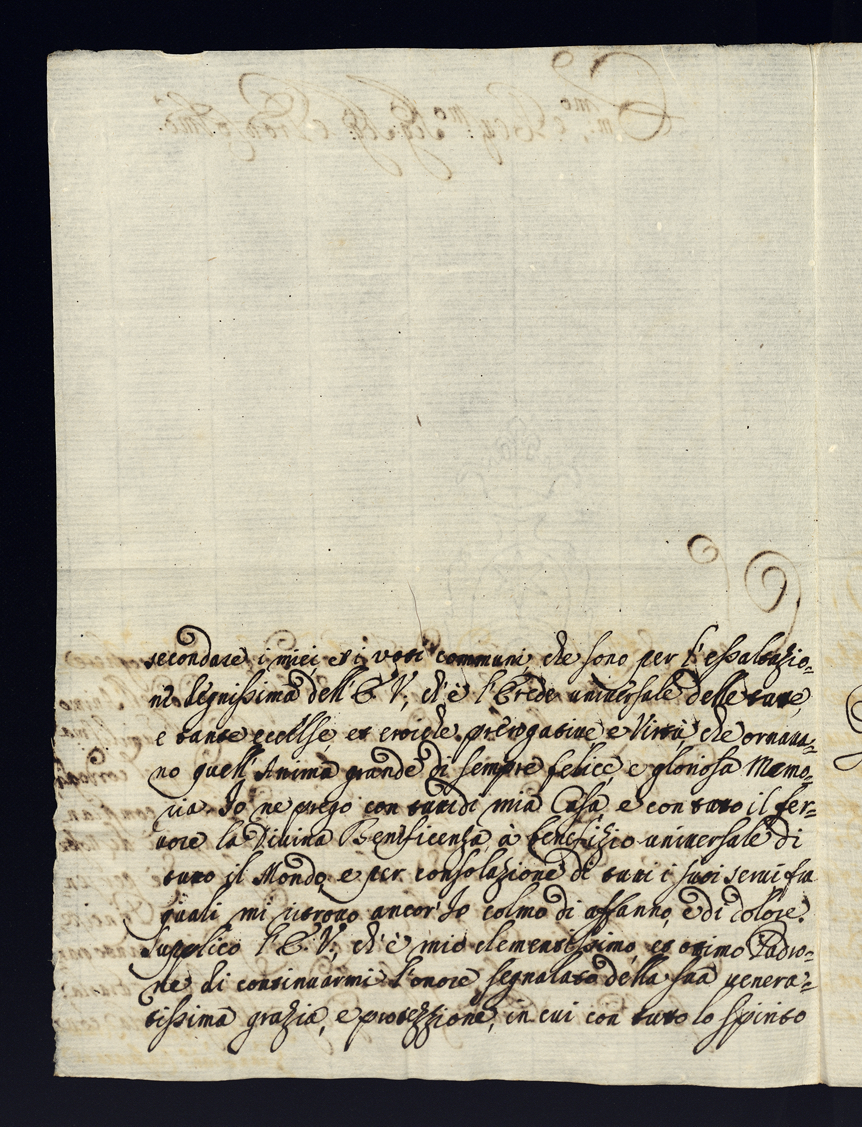 secondare i miei et i voti communi che sono per l'essaltazio=
ne degnissima dell'E V., ch'è l'Erede universale delle tante,
e tante eccelse, et eroiche prerogative e Virtù, che ornava=
no quell'Anima grande di sempre felice, e gloriosa Memo=
ria. Io ne prego con tutti di mia Casa e con tutto il fer=
vore la Divina Beneficenza, à benefizio universale di
tutto il Mondo, e per consolazione di tutti i suoi servi fra
quali mi ritrovo ancor'Io colmo di affanno, e di dolore.
Supplico l'E V., ch'è mio clementissimo, et ottimo Padro=
ne di continuarmi l'onore segnalato della sua venera=
tissima grazia, e protezzione, in cui con tutto lo spirito